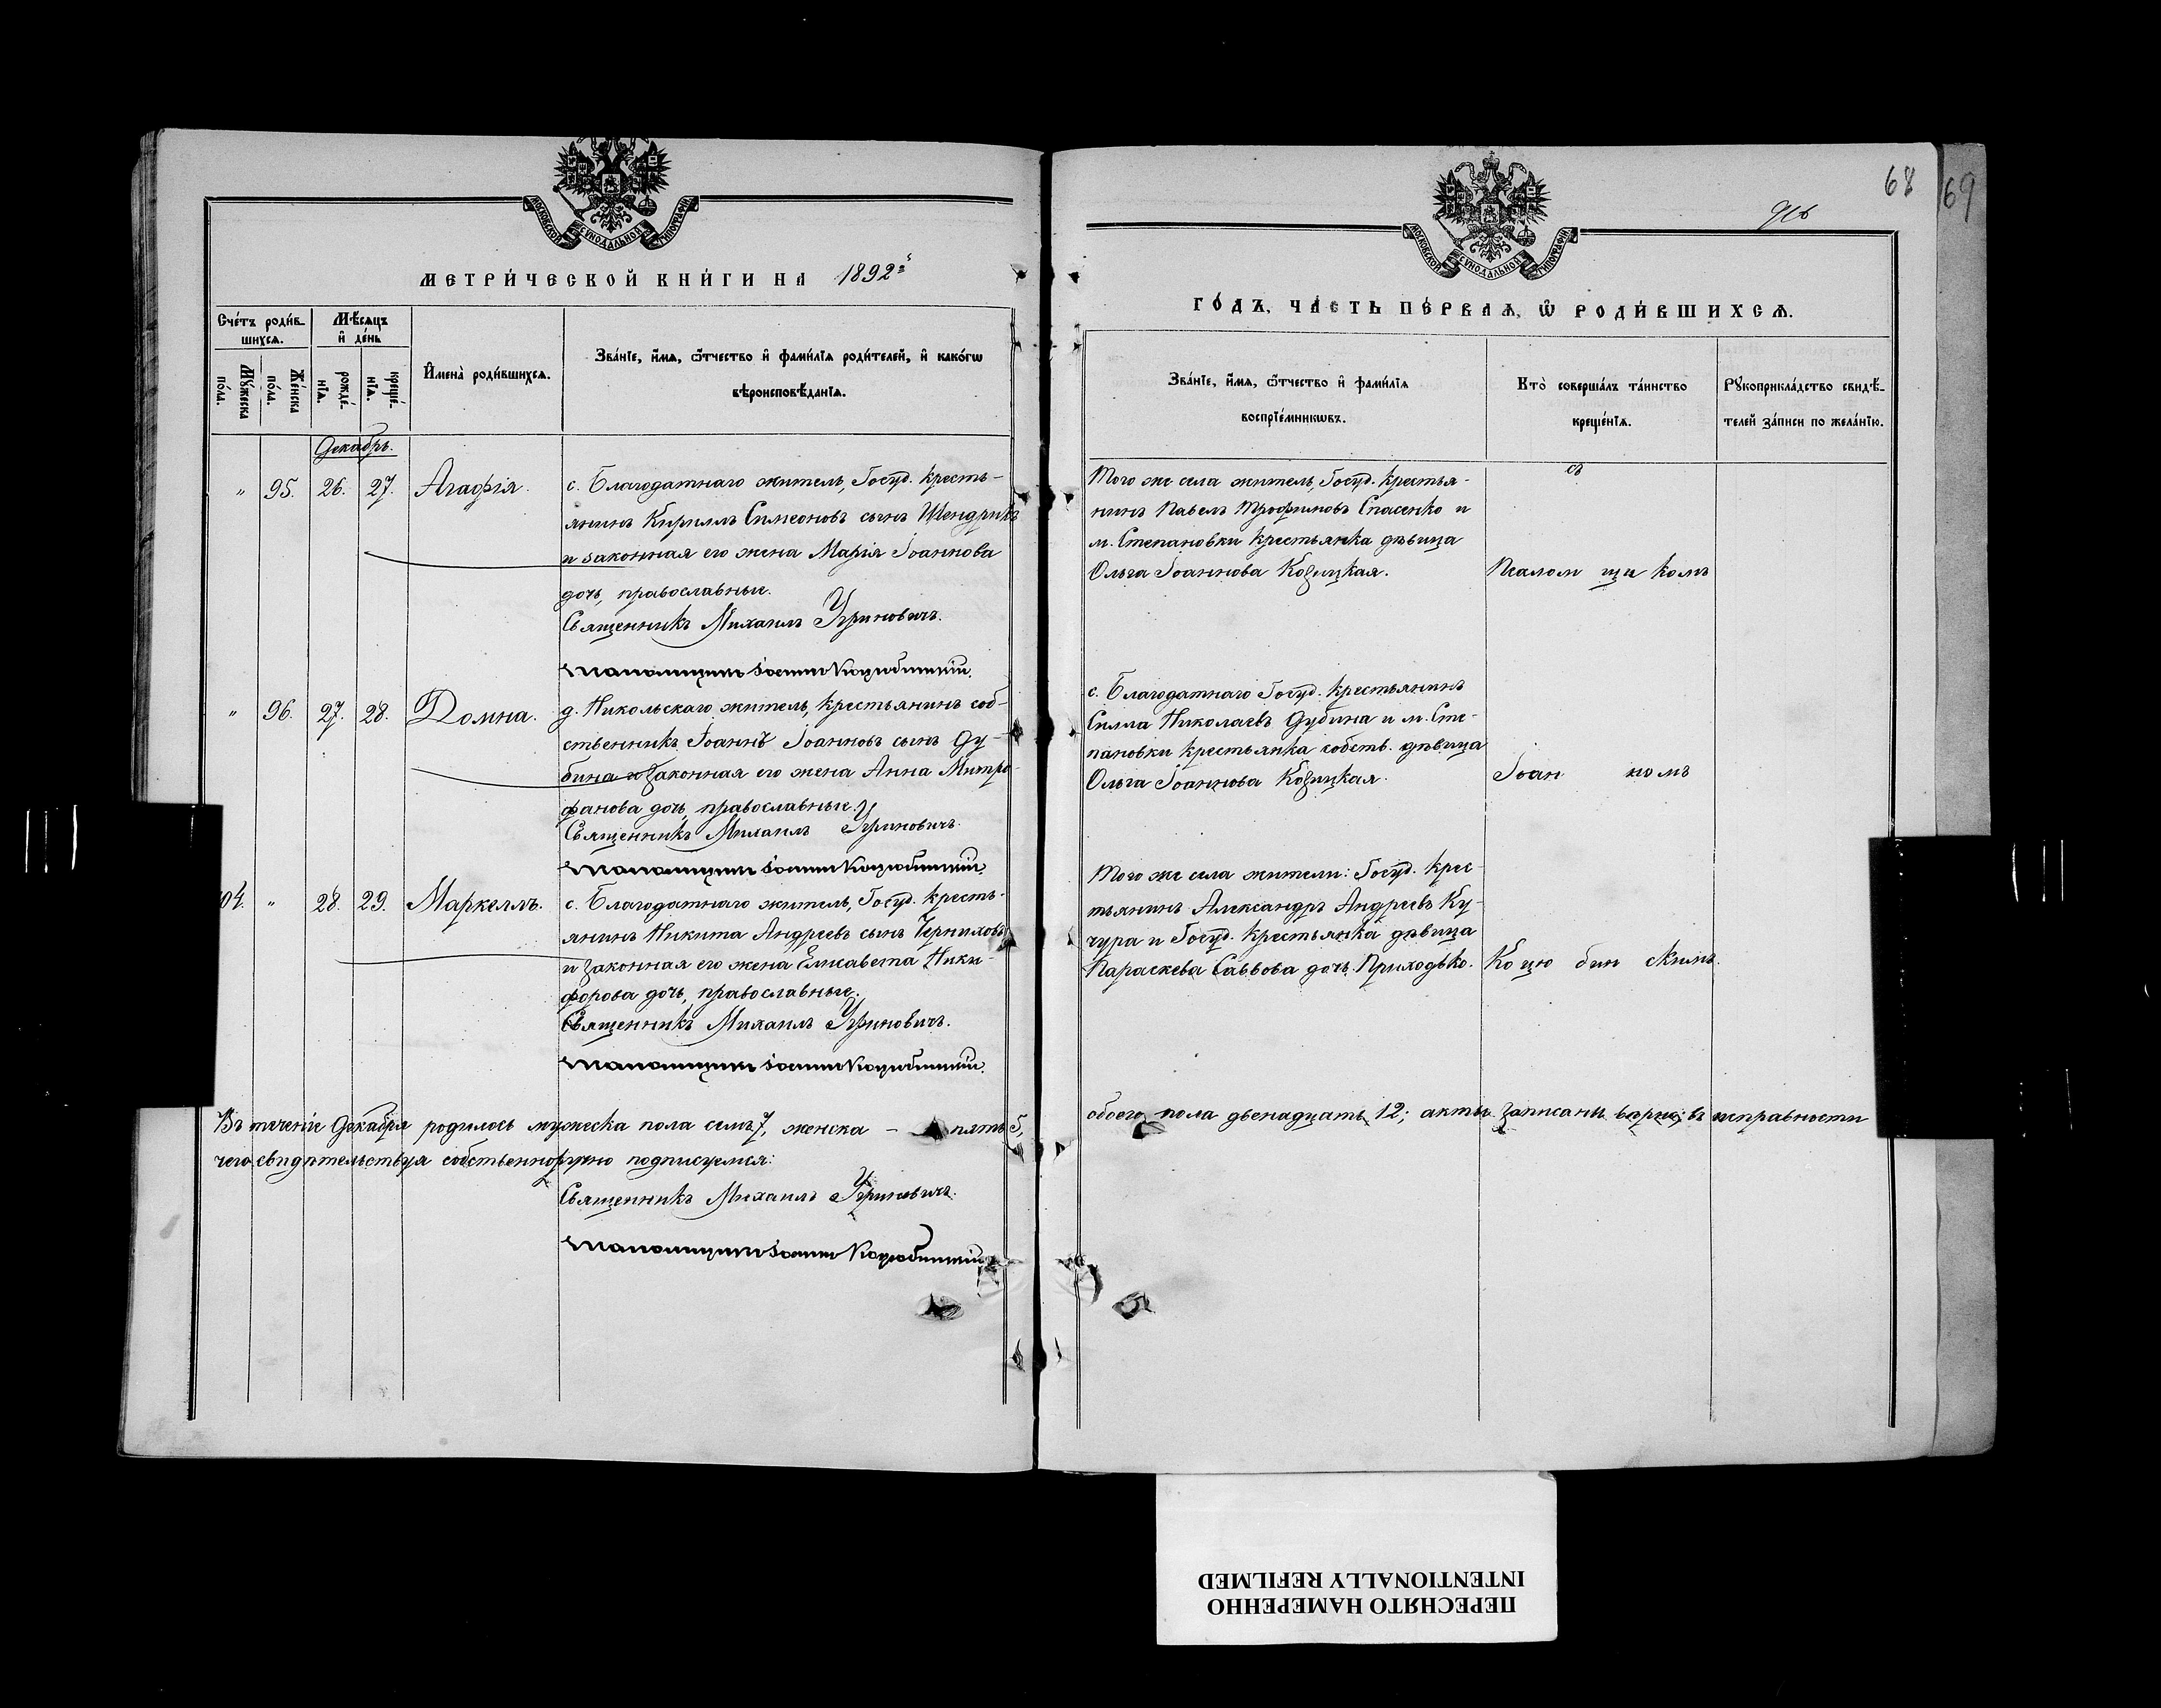 МОСКОВСКОЙ СУНОДАЛЬНОЙ ТИПОГРАФІИ
МЕТРИ́ЧЕСКОЙ КНИ́ГИ НА 1892й
Сче́тъ роди́в-
шихсѧ.
Мѣ́сѧцъ
и҆ де́нь
Мꙋ́жеска
по́ла.
Же́нска
по́ла.
рожде́-
нїѧ.
креще́-
нїѧ.
И҆мена̀ роди́вшихсѧ.
Зва́нїе, и҆́мѧ, ѿ́чество и҆ фами́лїѧ роди́телей, и҆ како́гѡ
вѣроисповѣ́данїѧ.
Декабрь.
„ 95. 26. 27. Агафія.
с. Благодатнаго житель, Госуд. кресть-
янинъ Кириллъ Симеоновъ сынъ Шендрикъ
и законная его жена Марія Іоаннова
дочь, православные.
Священникъ Михаилъ Угриновичъ.
Псаломщикъ Іоаннъ Коцюбинскій.
„ 96. 27. 28. Домна.
д. Никольскаго житель, крестьянинъ соб-
ственникъ Іоаннъ Іоанновъ сынъ Ду-
бина и законная его жена Анна Митро-
фанова дочь, православные.
Священникъ Михаилъ Угриновичъ.
Псаломщикъ Іоаннъ Коцюбинскій.
104. „ 28. 29. Маркеллъ.
с. Благодатнаго житель, Госуд. кресть-
янинъ Никита Андреевъ сынъ Черниховъ
и законная его жена Елисавета Ники-
форова дочь, православные.
Священникъ Михаилъ Угриновичъ.
Псаломщикъ Іоаннъ Коцюбинскій.
Въ теченіе Декабря родилось мужеска пола семь 7, женска – пять 5,
чего свидѣтельствуя собственноручно подписуемся:
Священникъ Михаилъ Угриновичъ.
Псаломщикъ Іоаннъ Коцюбинскій
68
69
МОСКОВСКОЙ СУНОДАЛЬНОЙ ТИПОГРАФІИ
ГО́ДЪ, ЧА́СТЬ ПЕ́РВАѦ, Ѡ҆ РОДИ́ВШИХСѦ.
Зва́нїе, и҆́мѧ, ѿ́чество и҆ фами́лїѧ
воспрїе́мникѡвъ.
Кто̀ соверша́лъ та́инство
креще́нїѧ.
Рꙋкоприкла́дство свидѣ́-
телей за́писи по жела́нїю.
Того же села житель, Госуд. крестья-
нинъ Павелъ Трофимовъ Спасенко и
м. Степановки крестьянка дѣвица
Ольга Іоаннова Козицкая.
съ
Псалом щи комъ
с. Благодатнаго Госуд. крестьянинъ
Силла Николаевъ Дубина и м. Сте-
пановки крестьянка собств. дѣвица
Ольга Іоаннова Козицкая.
Іоан номъ
Того же села жители: Госуд. крес-
тьянинъ Александръ Андреевъ Ку-
чура и Госуд. крестьянка дѣвица
Параскева Саввова дочь Приходько.
Коцю бин скимъ.
обоего пола двенадцать 12; акты записаны верно, въ исправности
ПЕРЕСНЯТО НАМЕРЕННО
INTENTIONALLY REFILMED